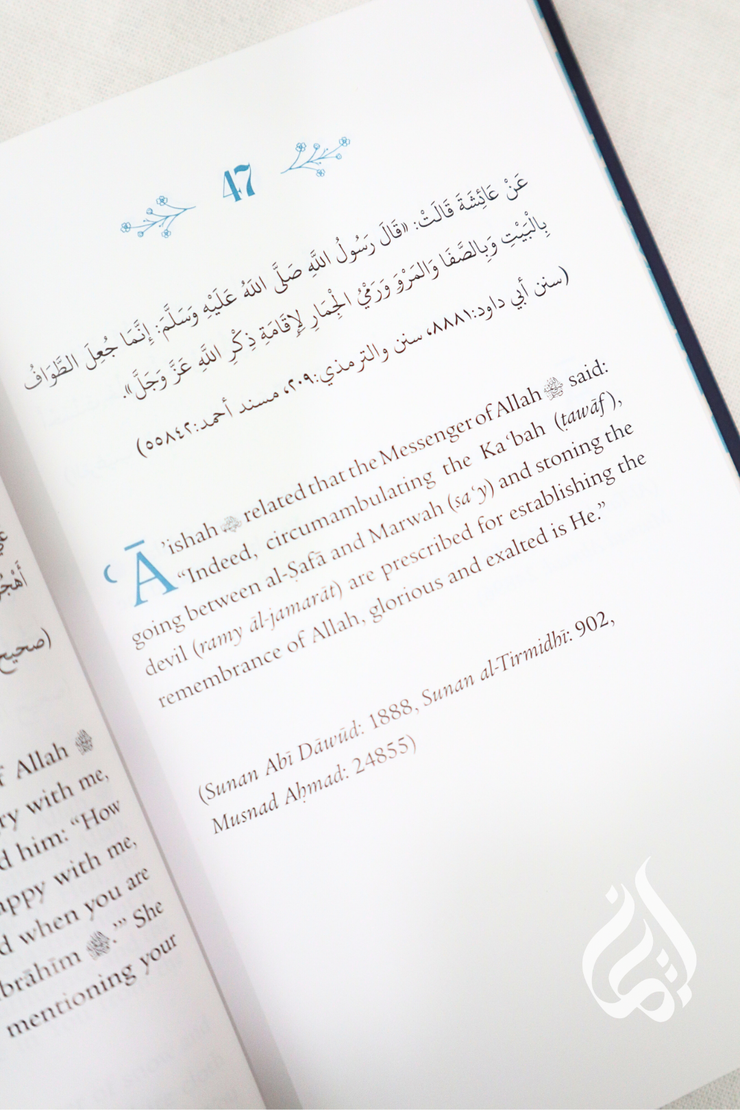 (صحيح
Allah ﷺ
with me,
him: “How
with me,
when you are
’” She
mentioning your
47
عَنْ عَائِشَةَ قَالَتْ: «قَالَ رَسُولُ اللَّهِ صَلَّى اللهُ عَلَيْهِ وَسَلَّمَ: إِنَّمَا جُعِلَ الطَّوَافُ
بِالْبَيْتِ وَبِالصَّفَا وَالمَرْوِ وَرَمْيُ الْجِمَارِ لِإِقَامَةِ ذِكْرِ اللَّهِ عَزَّ وَجَلَّ».
(سنن أبي داود:٨٨٨١، سنن والترمذي:٢٠٩، مسند أحمد:٥٥٨٤٢)
ʿĀ’ishah related that the Messenger of Allah ﷺ said:
“Indeed, circumambulating the Kaʿbah (ṭawāf),
going between al-Ṣafā and Marwah (saʿy) and stoning the
devil (ramy āl-jamarāt) are prescribed for establishing the
remembrance of Allah, glorious and exalted is He.”
(Sunan Abī Dāwūd: 1888, Sunan al-Tirmidhī: 902,
Musnad Aḥmad: 24855)